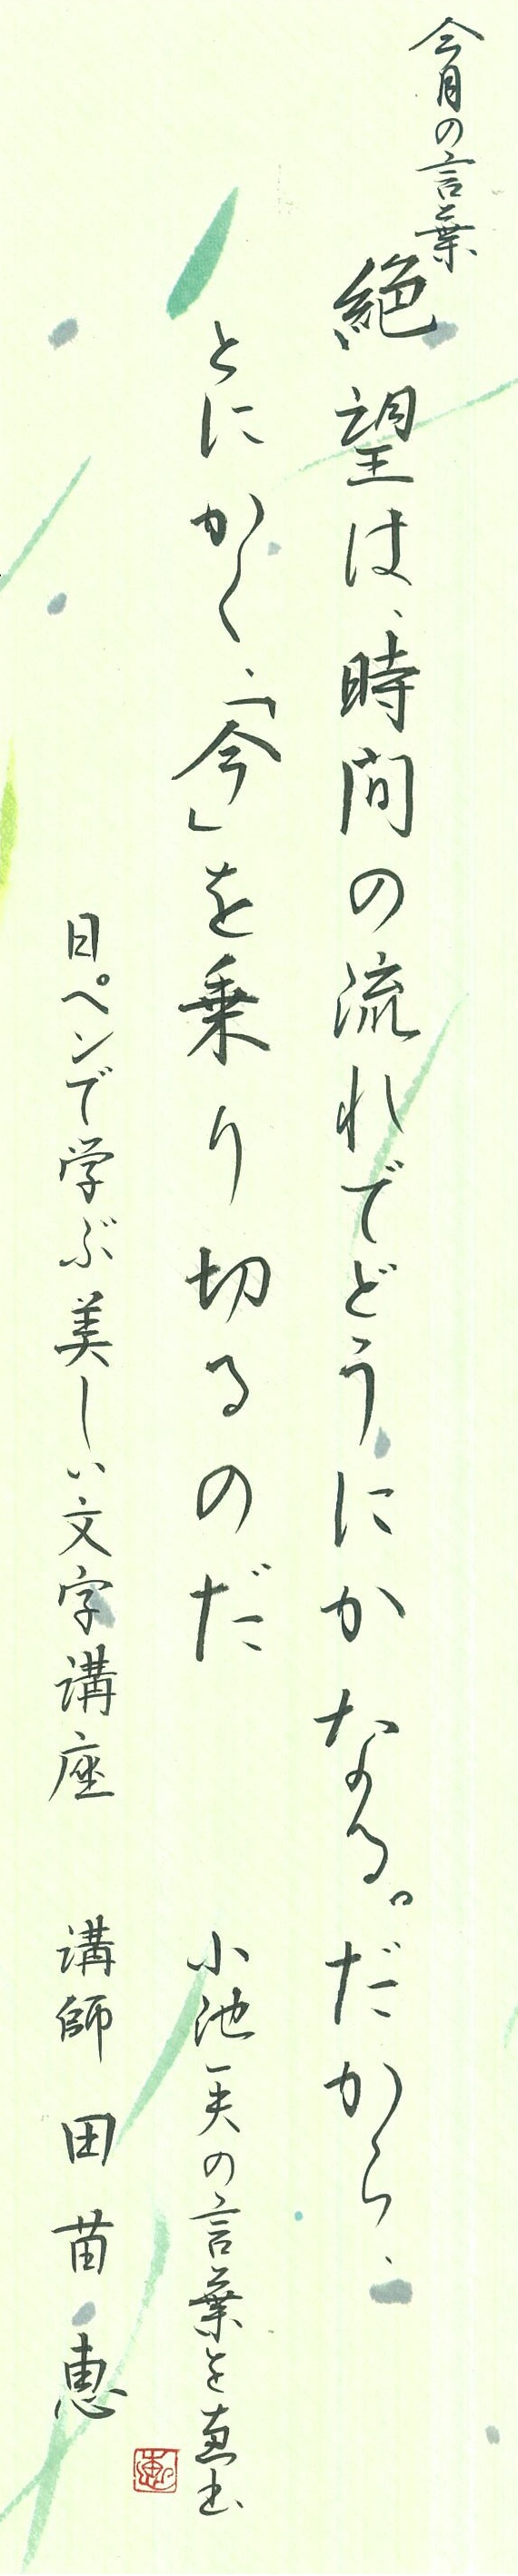 今月の言葉
絶望は、時間の流れでどうにかなる。だから、
とにかく、「今」を乗り切るのだ
小池一夫の言葉を恵書
日ペンで学ぶ美しい文字講座 講師 田苗 恵
恵